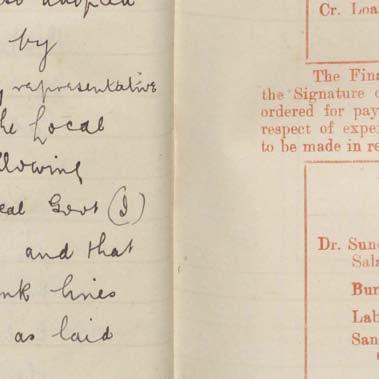 adopted
by
representative
the Local
following
Local Govt (I)
and that
lines
as laid
Cr. Loa
The Fina
the Signature o
ordered for pay
respect of expe
to be made in re
Dr. Sund
Sala
Bur
Lab
San